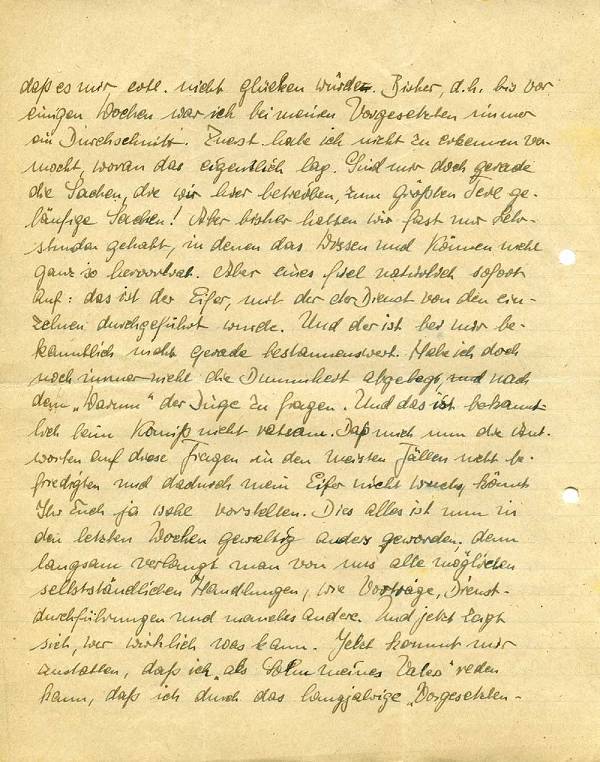 daß es mir evtl. nicht glücken würde. Bisher, d.h. bis vor
einigen Wochen war ich bei meinen Vorgesetzten immer
ein Durchschnitt. Zuerst habe ich nicht zu erkennen ver-
mocht, woran das eigentlich lag. Sind mir doch gerade
die Sachen, die wir hier betreiben, zum großten Teil ge-
läufige Sachen! Aber bisher hatten wir fast nur Lehr-
stunden gehabt, in denen das Wissen und Können nicht
ganz so hervortrat. Aber eines fiel natürlich sofort
auf: das ist der Eifer, mit der der Dienst von den ein-
zelnen durchgeführt wurde. Und der ist bei mir be-
kanntlich nicht gerade bestaunenswert. Habe ich doch
noch immer nicht die Dummheit abgelegt, und nach
dem „Warum" der Dinge zu fragen. Und das ist bekannt-
lich beim Komiß nicht ratsam. Daß mich nun die Ant-
worten auf diese Fragen in den meisten Fällen nicht be-
friedigten und dadurch mein Eifer nicht wuchs, könnt
Ihr Euch ja wohl vorstellen. Dies alles ist nun in
den letzten Wochen gewaltig anders geworden, denn
langsam verlangt man von uns alle möglichen
selbstständlichen Handlungen, wie Vorträge, Dienst-
durchführungen und manches andere. Und jetzt zeigt
sich, wer wirklich was kann. Jetzt kommt mir
zustatten, daß ich „als Sohn meines Vaters" reden
kann, daß ich durch das langjährige „Vorgesetzten-